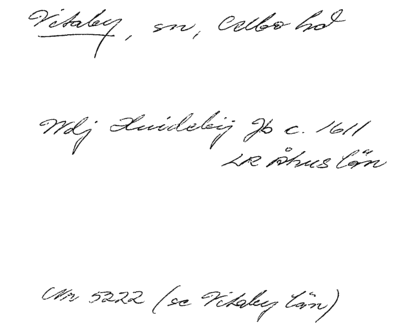 Vitaby, sn, Albo hd
Wdj Huidebij Jb c. 1611
LR Åhus län
Nr 5222 (se Vitaby län)